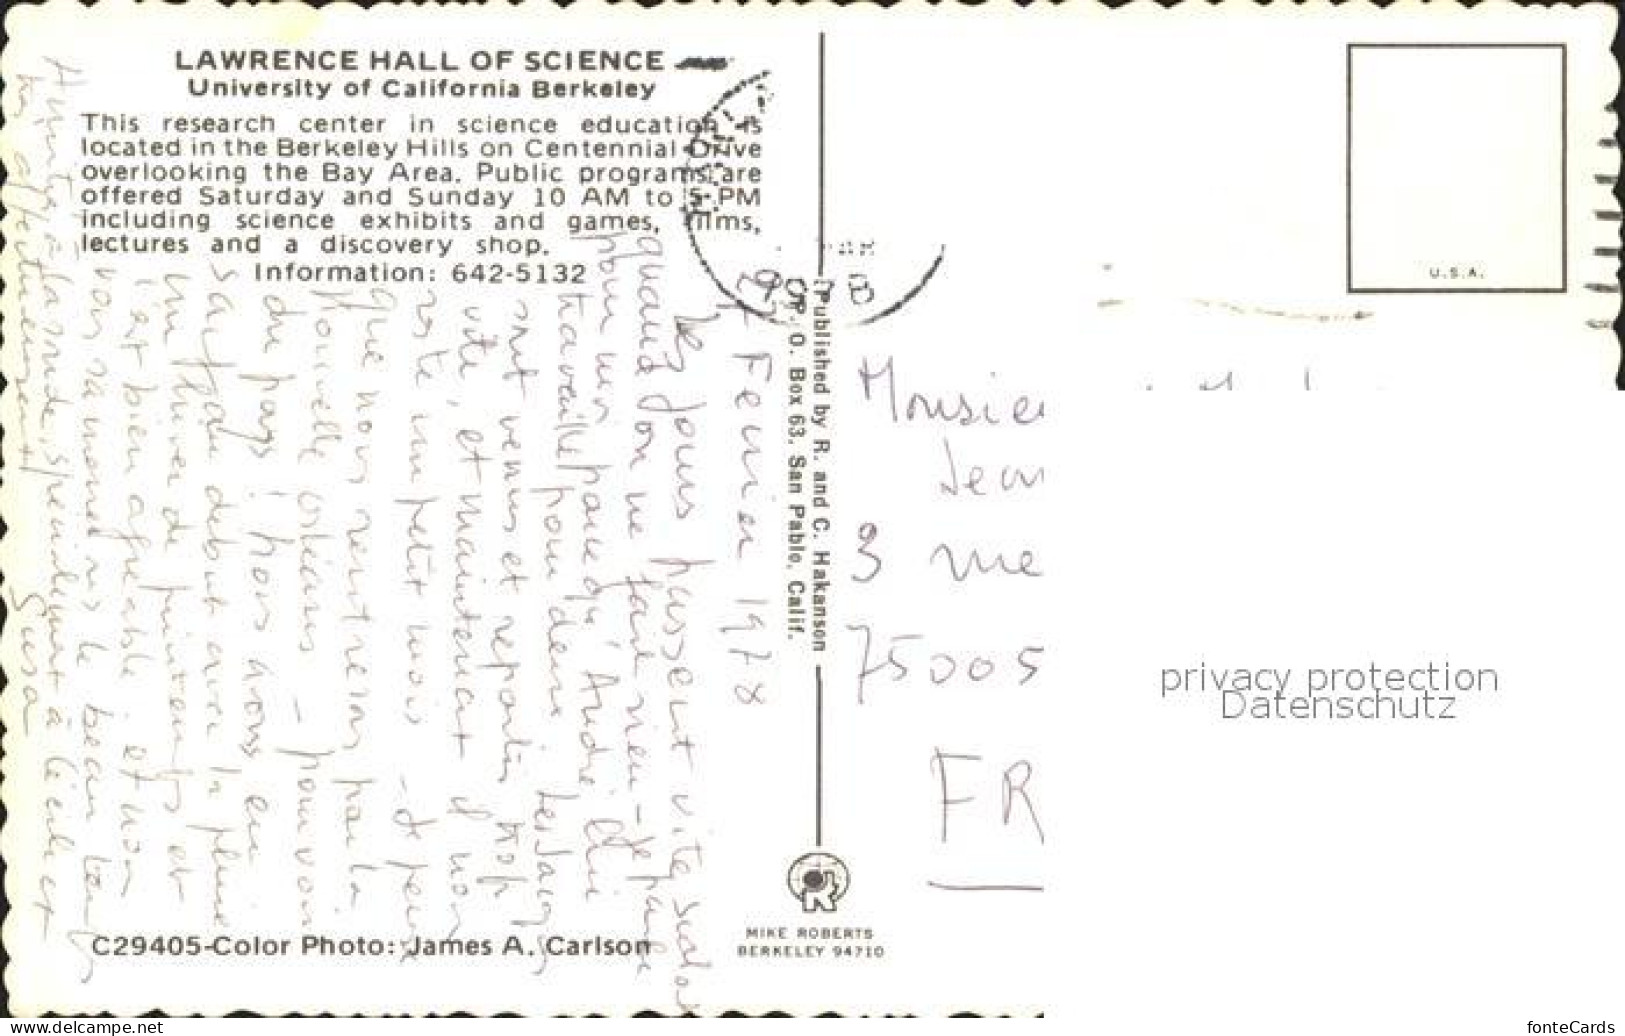 LAWRENCE HALL OF SCIENCE
University of California Berkeley
This research center in science education is
located in the Berkeley Hills on Centennial Drive
overlooking the Bay Area. Public programs are
offered Saturday and Sunday 10 AM to 5 PM
including science exhibits and games, films,
lectures and a discovery shop.
Information: 642-5132
Fevrier 1978
Les jours passent vite surtout
quand on ne fait rien - je parle
pour moi parce qu'André lui
travaille pour deux
sont venus et repartis trop
vite, et maintenant il nous
reste un petit mois - je pense
que nous rentrerons par la
Nouvelle Orléans - pour voir
du pays ! nous avons eu
sauf au début avec la pluie
un hiver de printemps et
c'est bien agréable
vous ramenerons le beau temps
Amitiés à la ronde, spécialement à
très affectueusement
Susa
C29405-Color Photo: James A. Carlson
Published by R. and C. Hakanson
P. O. Box 63, San Pablo, Calif.
MIKE ROBERTS
BERKELEY 94710
U.S.A.
Monsie
Jean
3 rue
75005
FR
privacy protection
Datenschutz
www.delcampe.net
fonteCards